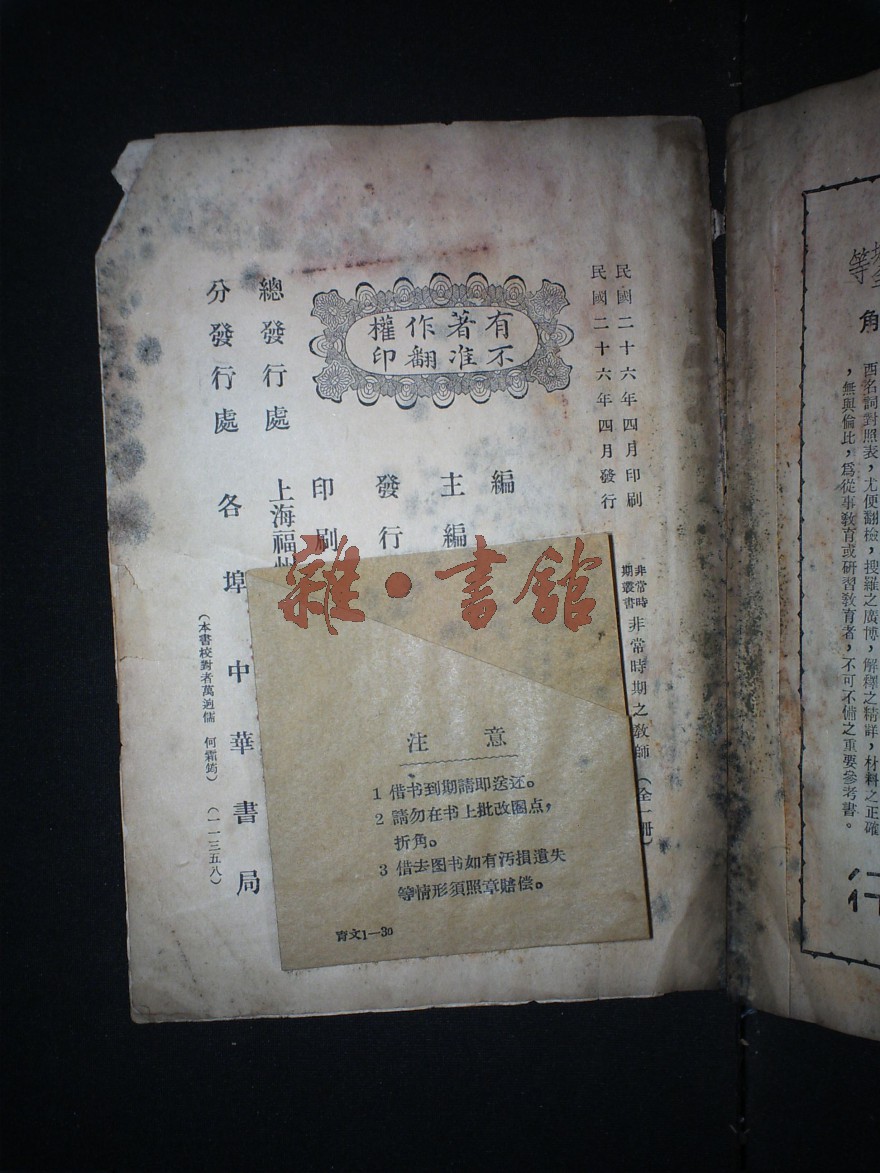 民國二十六年四月印刷
民國二十六年四月發行
非常時期叢書 非常時期之教師(全一冊)
有著作權
不准翻印
編
主編
發行
印刷
總發行處 上海福州
分發行處 各埠中華書局
(本書校對者萬迺儒 何霜筠)(一一三五八)
雜·書館
注意
1 借书到期請即送还。
2 請勿在书上批改圈点,
折角。
3 借去图书如有汚損遺失
等情形須照章賠偿。
育文1—30
等
角
西名詞對照表,尤便翻檢,搜羅之廣博,解釋之精詳,材料之正確
,無與倫比,爲從事教育或研習教育者,不可不備之重要參考書。
行